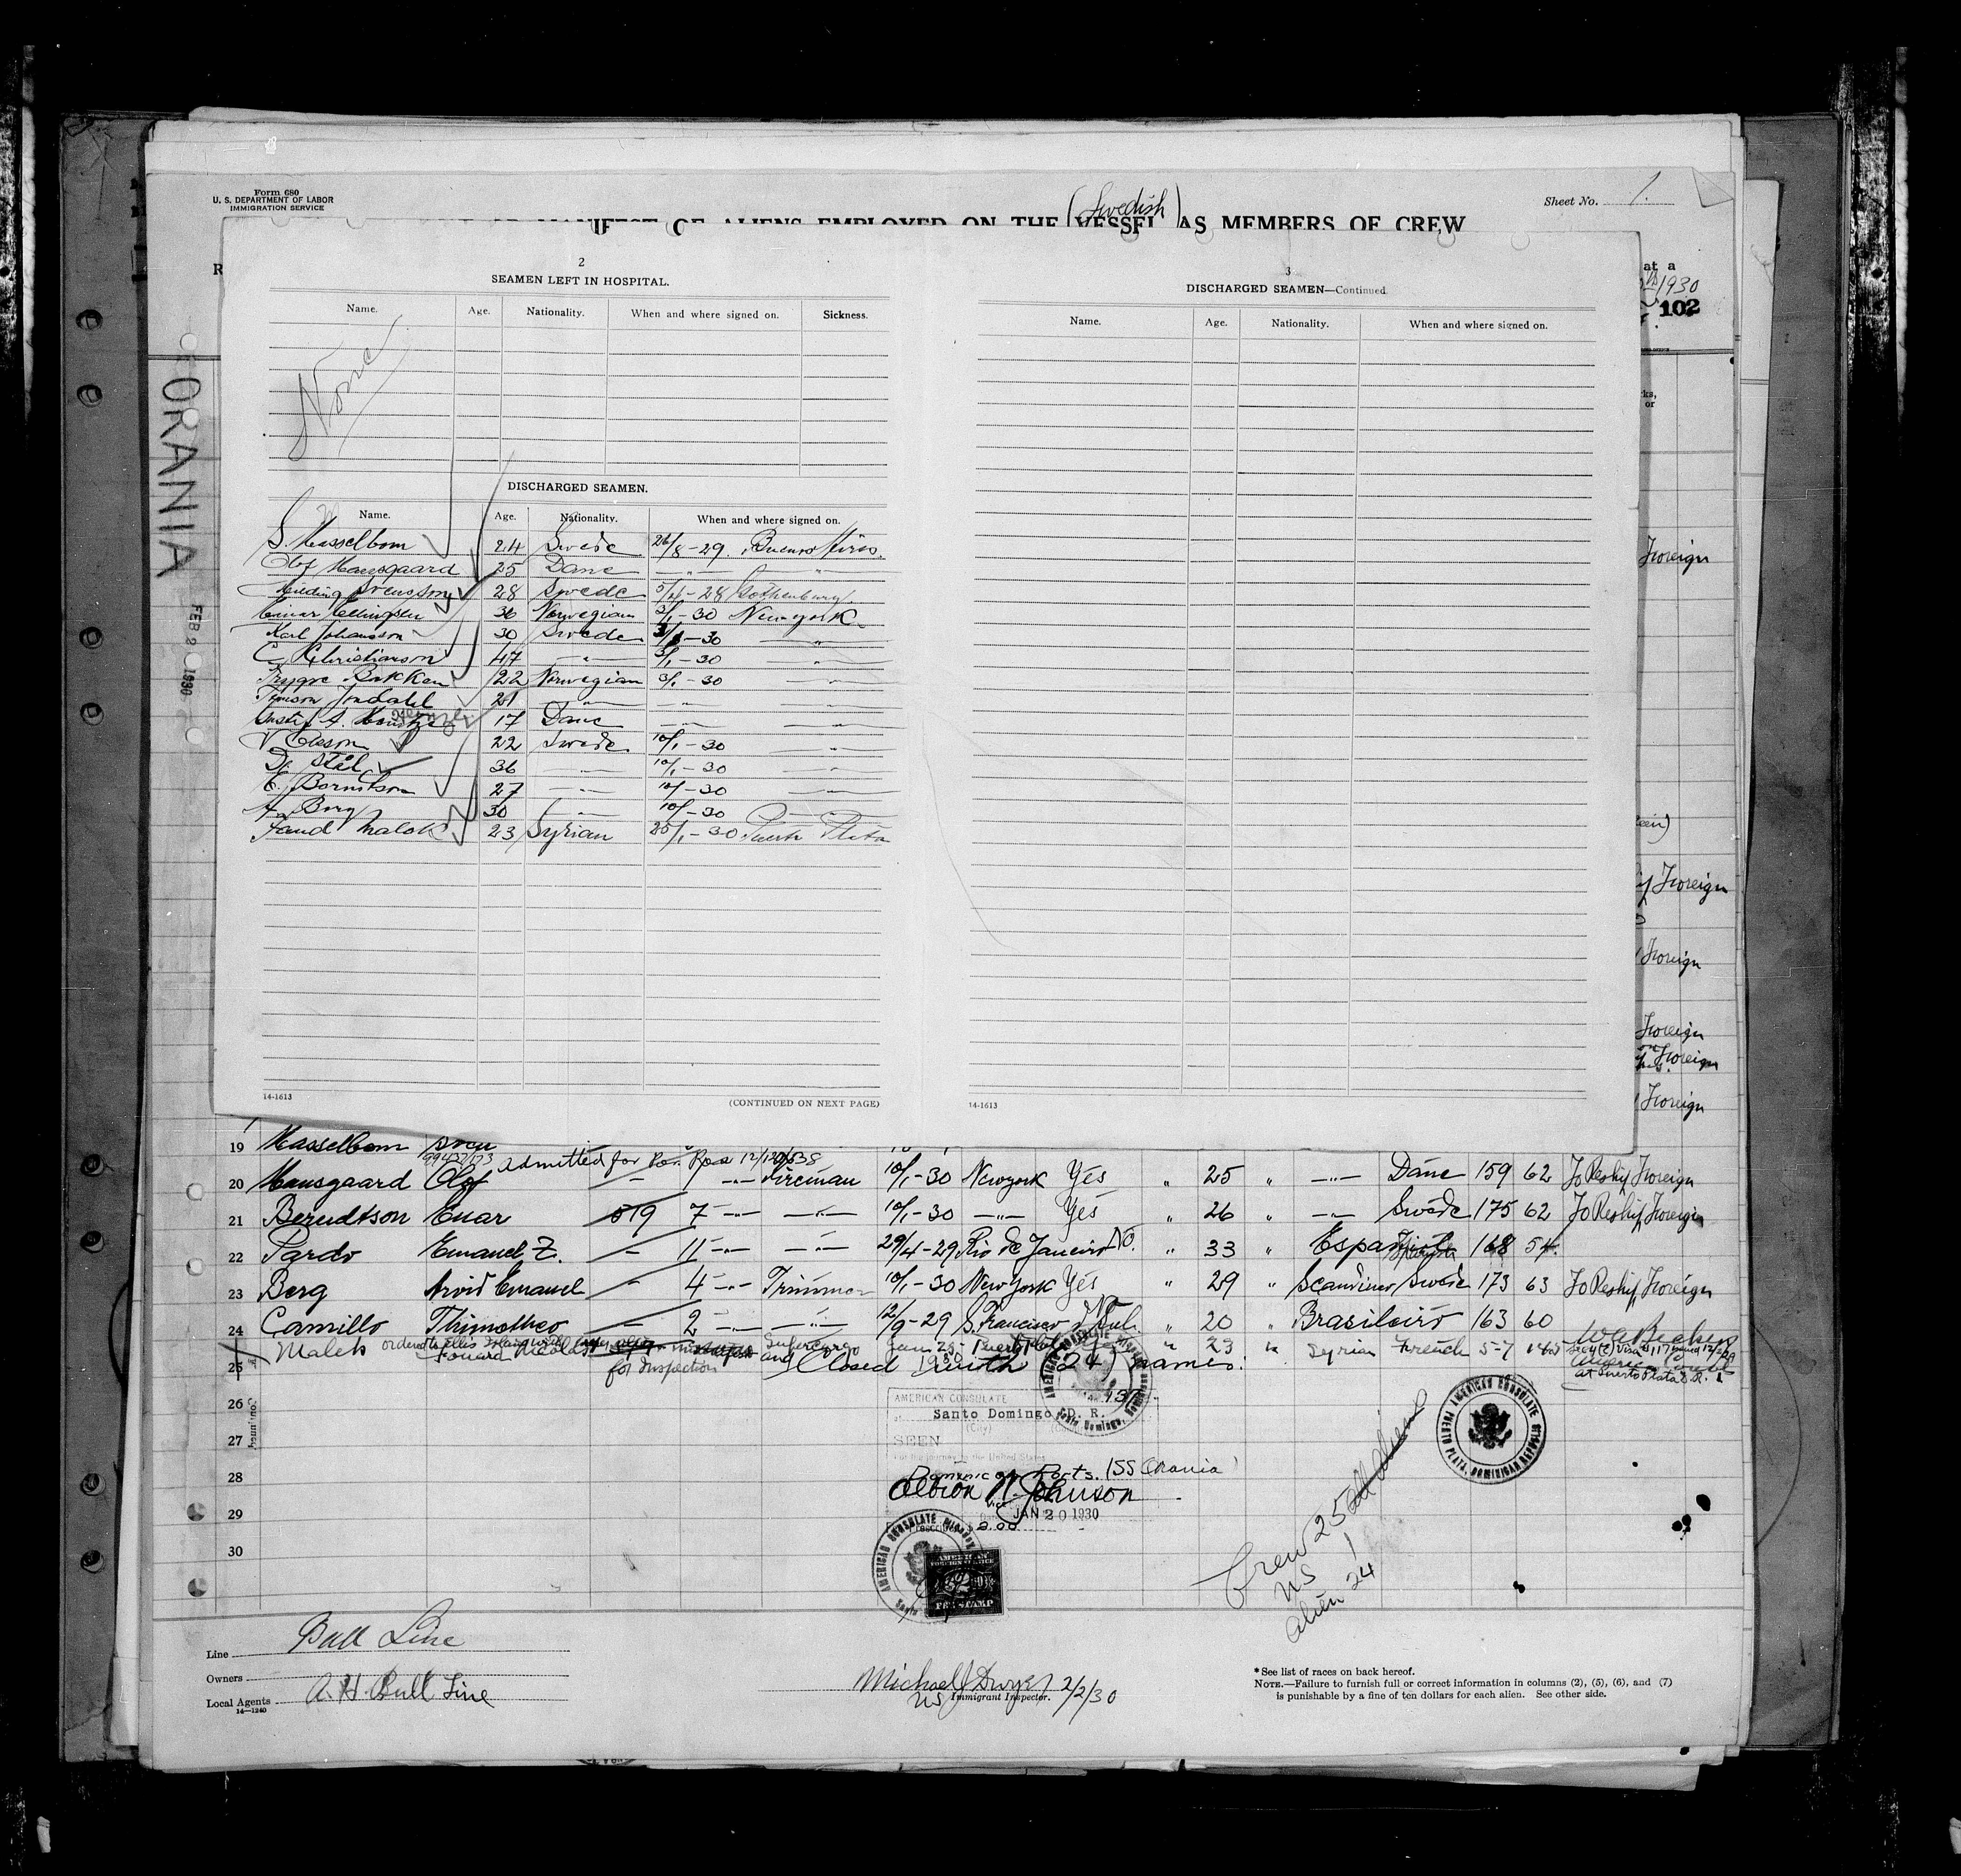 Form 680
U. S. DEPARTMENT OF LABOR
IMMIGRATION SERVICE
(Swedish)
Sheet No. 1.
MANIFEST OF ALIENS EMPLOYED ON THE VESSEL AS MEMBERS OF CREW
R
at a
1930
102
ORANIA
FEB 2 1930
2
SEAMEN LEFT IN HOSPITAL.
Name. Age. Nationality. When and where signed on. Sickness.
None
DISCHARGED SEAMEN.
Name. Age. Nationality. When and where signed on.
S. Hasselbom 24 Swede 26/8-29. Buenos Aires.
Olof Hansgaard 25 Dane —"— "
Svensson 28 Swede 5/4-28 Gothenburg.
Einar Ellingsen 36 Norwegian 3/1-30 New-york.
Karl Johansson 30 Swede 3/1-30 —"—
C. Christianson 47 —"— 3/1-30 —"—
Trygve Bakken 22 Norwegian 3/1-30 —"—
Jondahl 21 —"— —"— —"—
A. 17 Dane —"— —"—
V. Oleson 22 Swede 10/1-30 —"—
Stål 36 —"— 10/1-30 —"—
E. Berndtson 27 —"— 10/1-30 —"—
A. Berg 30 —"— 10/1-30
Faud Malok 23 Syrian 25/1-30 Puerto Plata
14-1613
(CONTINUED ON NEXT PAGE)
3
DISCHARGED SEAMEN—Continued
Name. Age. Nationality. When and where signed on.
14-1613
ks,
or
Foreign
Foreign
Foreign
Foreign
Foreign
Foreign
19 Hasselbom Sven
99437/173 Admitted for Per. Res
20 Hansgaard Olof — 7 —"— Fireman 10/1-30 Newyork Yes " 25 " —"— Dane 159 62 To Reship Foreign
21 Berndtson Enar 519 7 —"— —"— 10/1-30 —"— Yes " 26 " —"— Swede 175 62 To Reship Foreign
22 Pardo Emanuel Z. — 11 —"— —"— 29/4-29 Rio de Janeiro No. " 33 " Español 168 54.
23 Berg Arvid Emanuel — 4 —"— Trimmer 10/1-30 New York Yes " 29 " Scandinav Swede 173 63 To Reship Foreign
24 Camillo Thimotheo — 2 —"— —"— 12/9-29 S. Francisco d Sul " 20 " Brasileiro 163 60
25 Malek Supercargo Jan 25- Puerto Plata 23 " Syrian French 5-7
for Inspection
and Closed with (24) names.
at Puerto Plata D. R.
26
27
28
29
30
AMERICAN CONSULATE
Santo Domingo, D. R.
(City)
SEEN
For the journey to the United States
Dominican Ports. (SS Orania)
Albion W. Johnson
Vice
JAN 20 1930
2.00
AMERICAN CONSULATE
Santo Domingo, Dominican
AMERICAN
FOREIGN SERVICE
FEE STAMP
AMERICAN CONSULATE
PUERTO PLATA, DOMINICAN REPUBLIC
Crew 25
US 1
Alien 24
Line Bull Line
Owners
Local Agents A. H. Bull Line
14—1240
Michael J Dwyer 2/2/30
US Immigrant Inspector.
* See list of races on back hereof.
NOTE.—Failure to furnish full or correct information in columns (2), (5), (6), and (7)
is punishable by a fine of ten dollars for each alien. See other side.